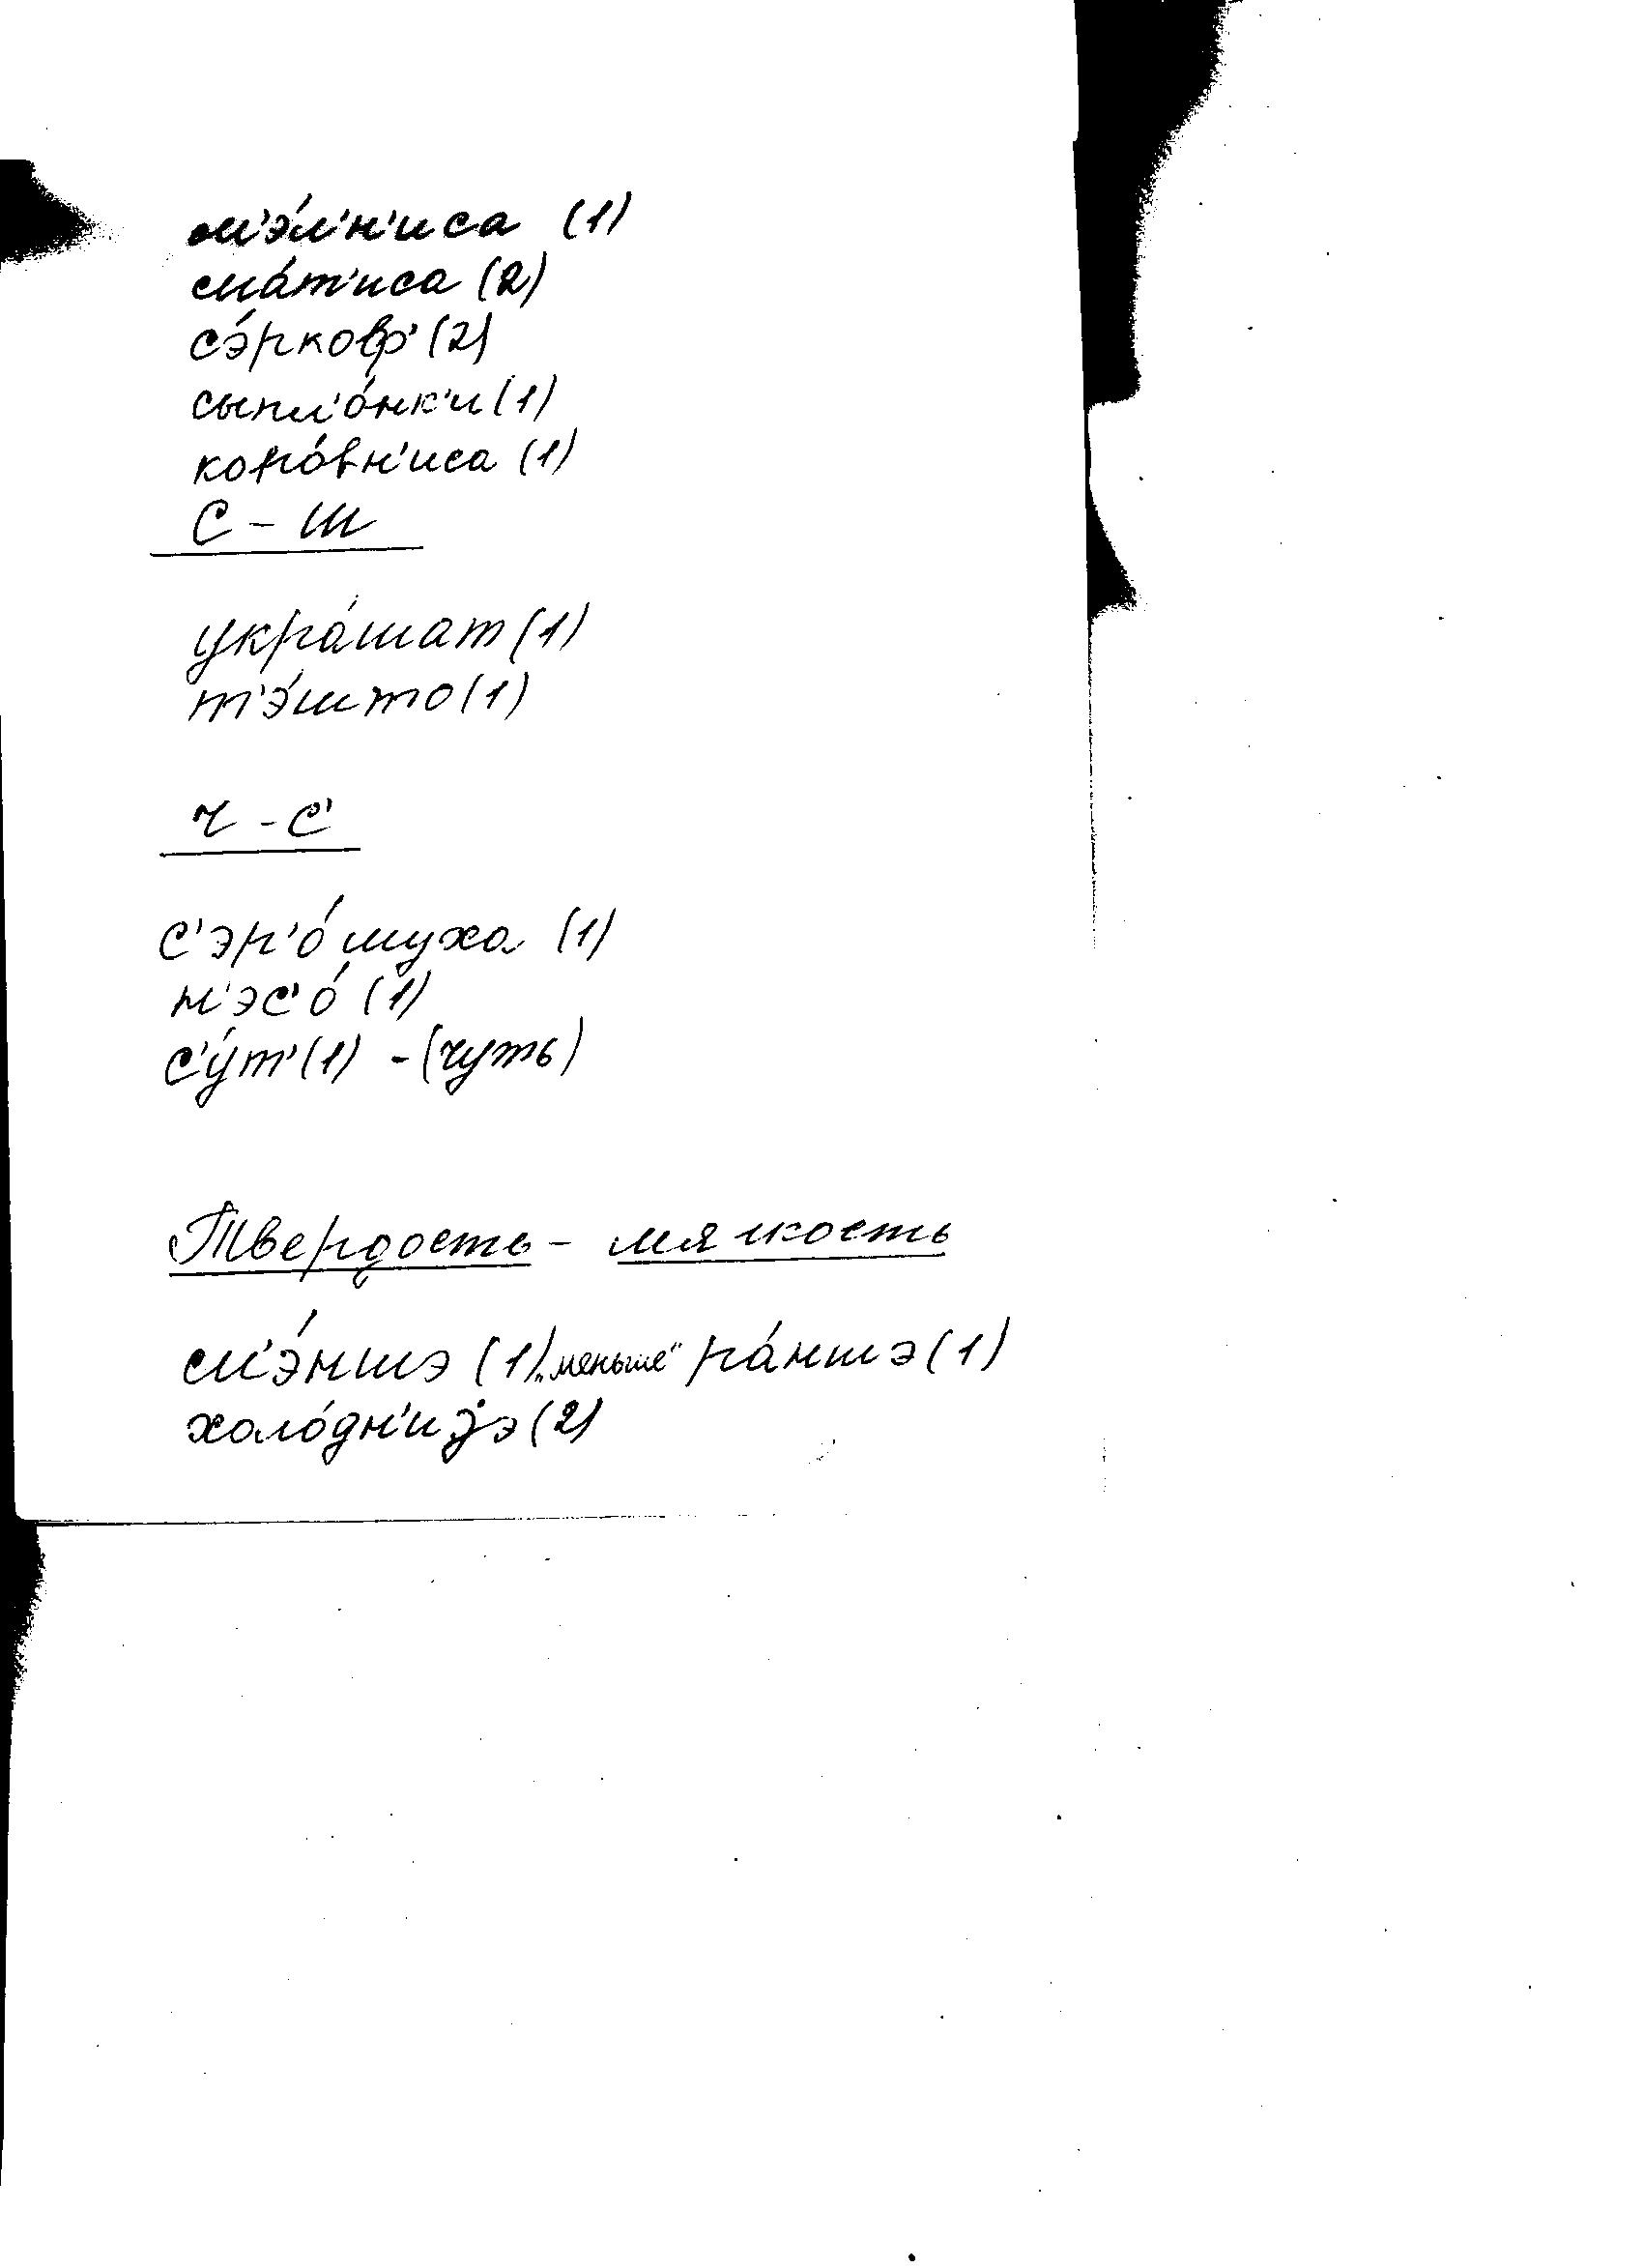 м'э́л'н'иса (1)
сма́т'иса (2)
сэ́рковф' (2)
сыпл'о́нк'и (1)
коро́вн'иса (1)
С – Ш
укра́шат (1)
т'э́што (1)
ч – с'
с'эр'о́муха (1)
п'эс'о́ (1)
с'у́т' (1) – (чуть)
Твердость – мягкость
см'э́ншэ (1) „меньше“ ра́ншэ (1)
холо́дн'иjэ (2)